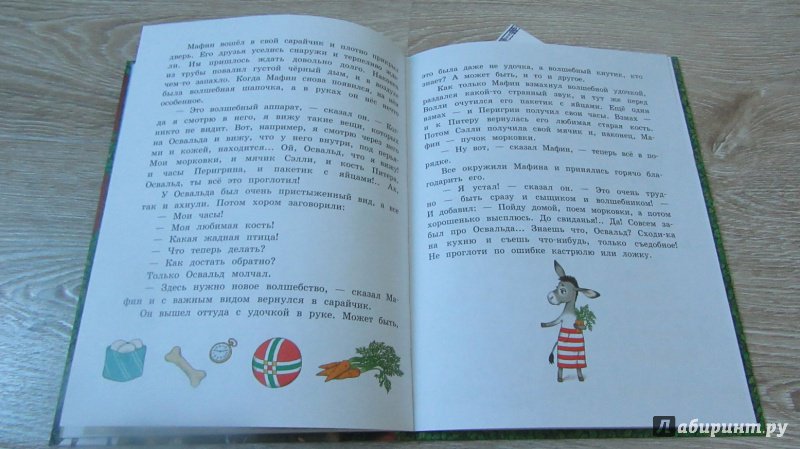 Мафин вошёл в свой сарайчик и плотно прикрыл
дверь. Его друзья уселись снаружи и терпеливо жда-
ли. Им пришлось ждать довольно долго. Наконец
из трубы повалил густой чёрный дым, и в воздухе
чем-то запахло. Когда Мафин снова появился, на нём
была волшебная шапочка, а в руках он нёс нечто
особенное.
— Это волшебный аппарат, — сказал он. — Ко-
гда я смотрю в него, я вижу такие вещи, которых
никто не видит. Вот, например, я смотрю через него
на Освальда и вижу, что у него внутри, под перья-
ми и кожей, находится... Ой, Освальд, что я вижу!
Мои морковки, и мячик Сэлли, и кость Питера,
и часы Перигрина, и пакетик с яйцами!.. Ах,
Освальд, ты всё это проглотил!
У Освальда был очень пристыженный вид, а все
так и ахнули. Потом хором заговорили:
— Мои часы!
— Моя любимая кость!
— Какая жадная птица!
— Что теперь делать?
— Как достать обратно?
Только Освальд молчал.
— Здесь нужно новое волшебство, — сказал Ма-
фин и с важным видом вернулся в сарайчик.
Он вышел оттуда с удочкой в руке. Может быть,
это была даже не удочка, а волшебный кнутик, кто
знает? А может быть, и то и другое.
Как только Мафин взмахнул волшебной удочкой,
раздался какой-то странный звук, и тут же перед
Волли очутился его пакетик с яйцами. Ещё один
взмах — и Перигрин получил свои часы. Взмах —
и к Питеру вернулась его любимая старая кость.
Потом Сэлли получила свой мячик и, наконец, Ма-
фин — пучок морковки.
— Ну вот, — сказал Мафин, — теперь всё в по-
рядке.
Все окружили Мафина и принялись горячо бла-
годарить его.
— Я устал! — сказал он. — Это очень труд-
но — быть сразу и сыщиком и волшебником! —
И добавил: — Пойду домой, поем морковки, а потом
хорошенько высплюсь. До свиданья!.. Да! Совсем за-
был про Освальда... Знаешь что, Освальд? Сходи-ка
на кухню и съешь что-нибудь, только съедобное!
Не проглоти по ошибке кастрюлю или ложку.
Лабиринт.ру